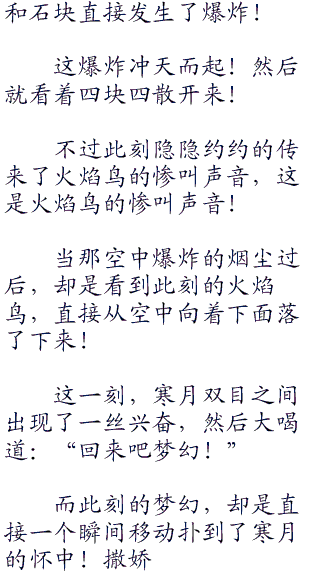 和石块直接发生了爆炸！
这爆炸冲天而起！然后
就看着四块四散开来！
不过此刻隐隐约约的传
来了火焰鸟的惨叫声音，这
是火焰鸟的惨叫声音！
当那空中爆炸的烟尘过
后，却是看到此刻的火焰
鸟，直接从空中向着下面落
了下来！
这一刻，寒月双目之间
出现了一丝兴奋，然后大喝
道：“回来吧梦幻！”
而此刻的梦幻，却是直
接一个瞬间移动扑到了寒月
的怀中！撒娇